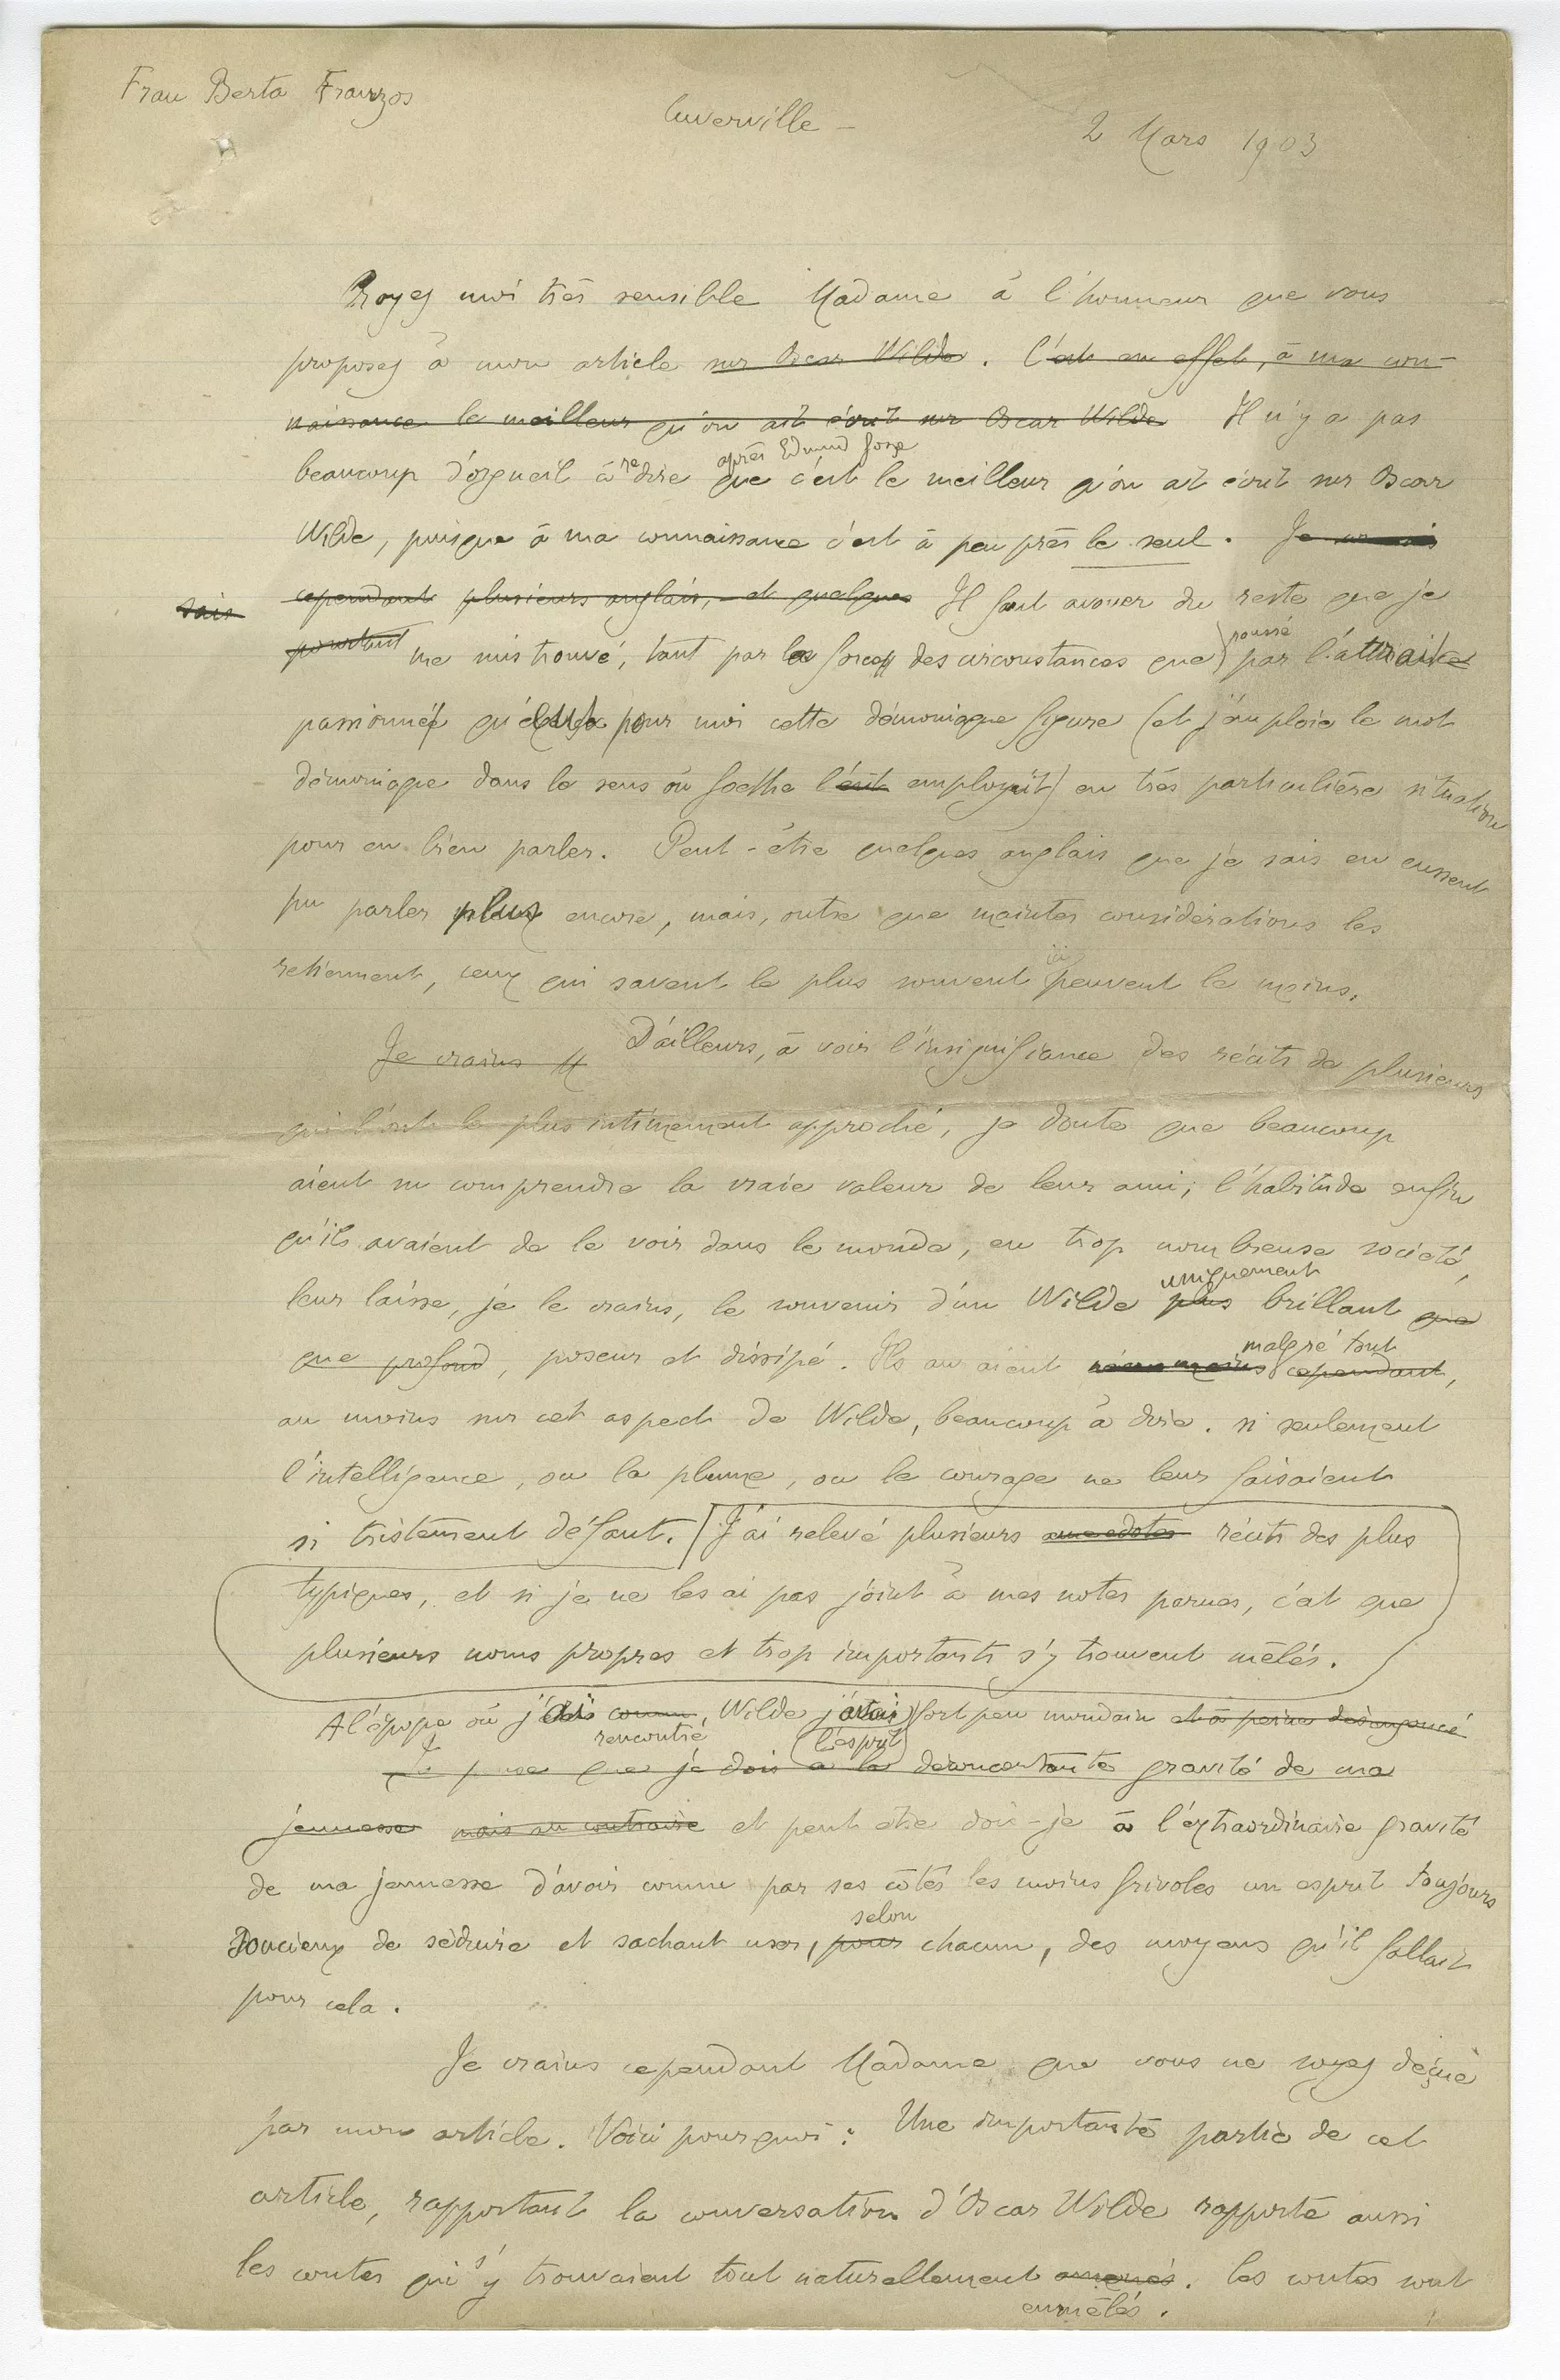 Frau Berta Franzos
Cuverville –
2 Mars 1903
Croyez moi très sensible Madame à l'honneur que vous
proposez à mon article sur Oscar Wilde. C'est en effet, à ma con-
naissance le meilleur qu'on ait écrit sur Oscar Wilde Il n'y a pas
après Edmund Gosse
beaucoup d'orgueil à redire que c'est le meilleur qu'on ait écrit sur Oscar
Wilde, puisque à ma connaissance c'est à peu près le seul. Je
sais cependant plusieurs anglais, et quelques Il faut avouer du reste que je
poussé
pourtant me suis trouvé, tant par la force des circonstances que par l'attrait
passionné qu'eut pour moi cette démoniaque figure (et j'emploie le mot
démoniaque dans le sens où Goethe l'eût employait) en très particulière situation
pour en bien parler. Peut-être quelques anglais que je sais en eussent
pu parler plus encore, mais, outre que maintes considérations les
retiennent, ceux qui savent le plus souvent peuvent le moins.
Je crains D'ailleurs, à voir l'insignifiance des récits de plusieurs
qui l'ont le plus intimement approché, je doute que beaucoup
aient su comprendre la vraie valeur de leur ami; l'habitude enfin
qu'ils avaient de le voir dans le monde, en trop nombreuse société,
uniquement
leur laisse, je le crains, le souvenir d'un Wilde plus brillant que
malgré tout
que profond, poseur et dissipé. Ils auraient néanmoins cependant,
au moins sur cet aspect de Wilde, beaucoup à dire. si seulement
l'intelligence, ou la plume, ou le courage ne leur faisaient
si tristement défaut. J'ai relevé plusieurs anecdotes récits des plus
typiques, et si je ne les ai pas joint à mes notes parues, c'est que
plusieurs noms propres et trop importants s'y trouvent mêlés.
A l'époque où j'ai connu, Wilde j'avais fort peu mondain et à peine désengoncé
rencontré
(l'esprit)
Je pense que je dois à la déconcertante gravité de ma
jeunesse mais au contraire et peut être dois-je à l'extraordinaire gravité
de ma jeunesse d'avoir connu par ses côtés les moins frivoles un esprit toujours
selon
soucieux de séduire et sachant user, pour chacun, des moyens qu'il fallait
pour cela.
Je crains cependant Madame que vous ne soyez déçue
par mon article. Voici pourquoi: Une importante partie de cet
article, rapportant la conversation d'Oscar Wilde rapporte aussi
les contes qui s'y trouvaient tout naturellement amenés. Ces contes sont
enmêlés.